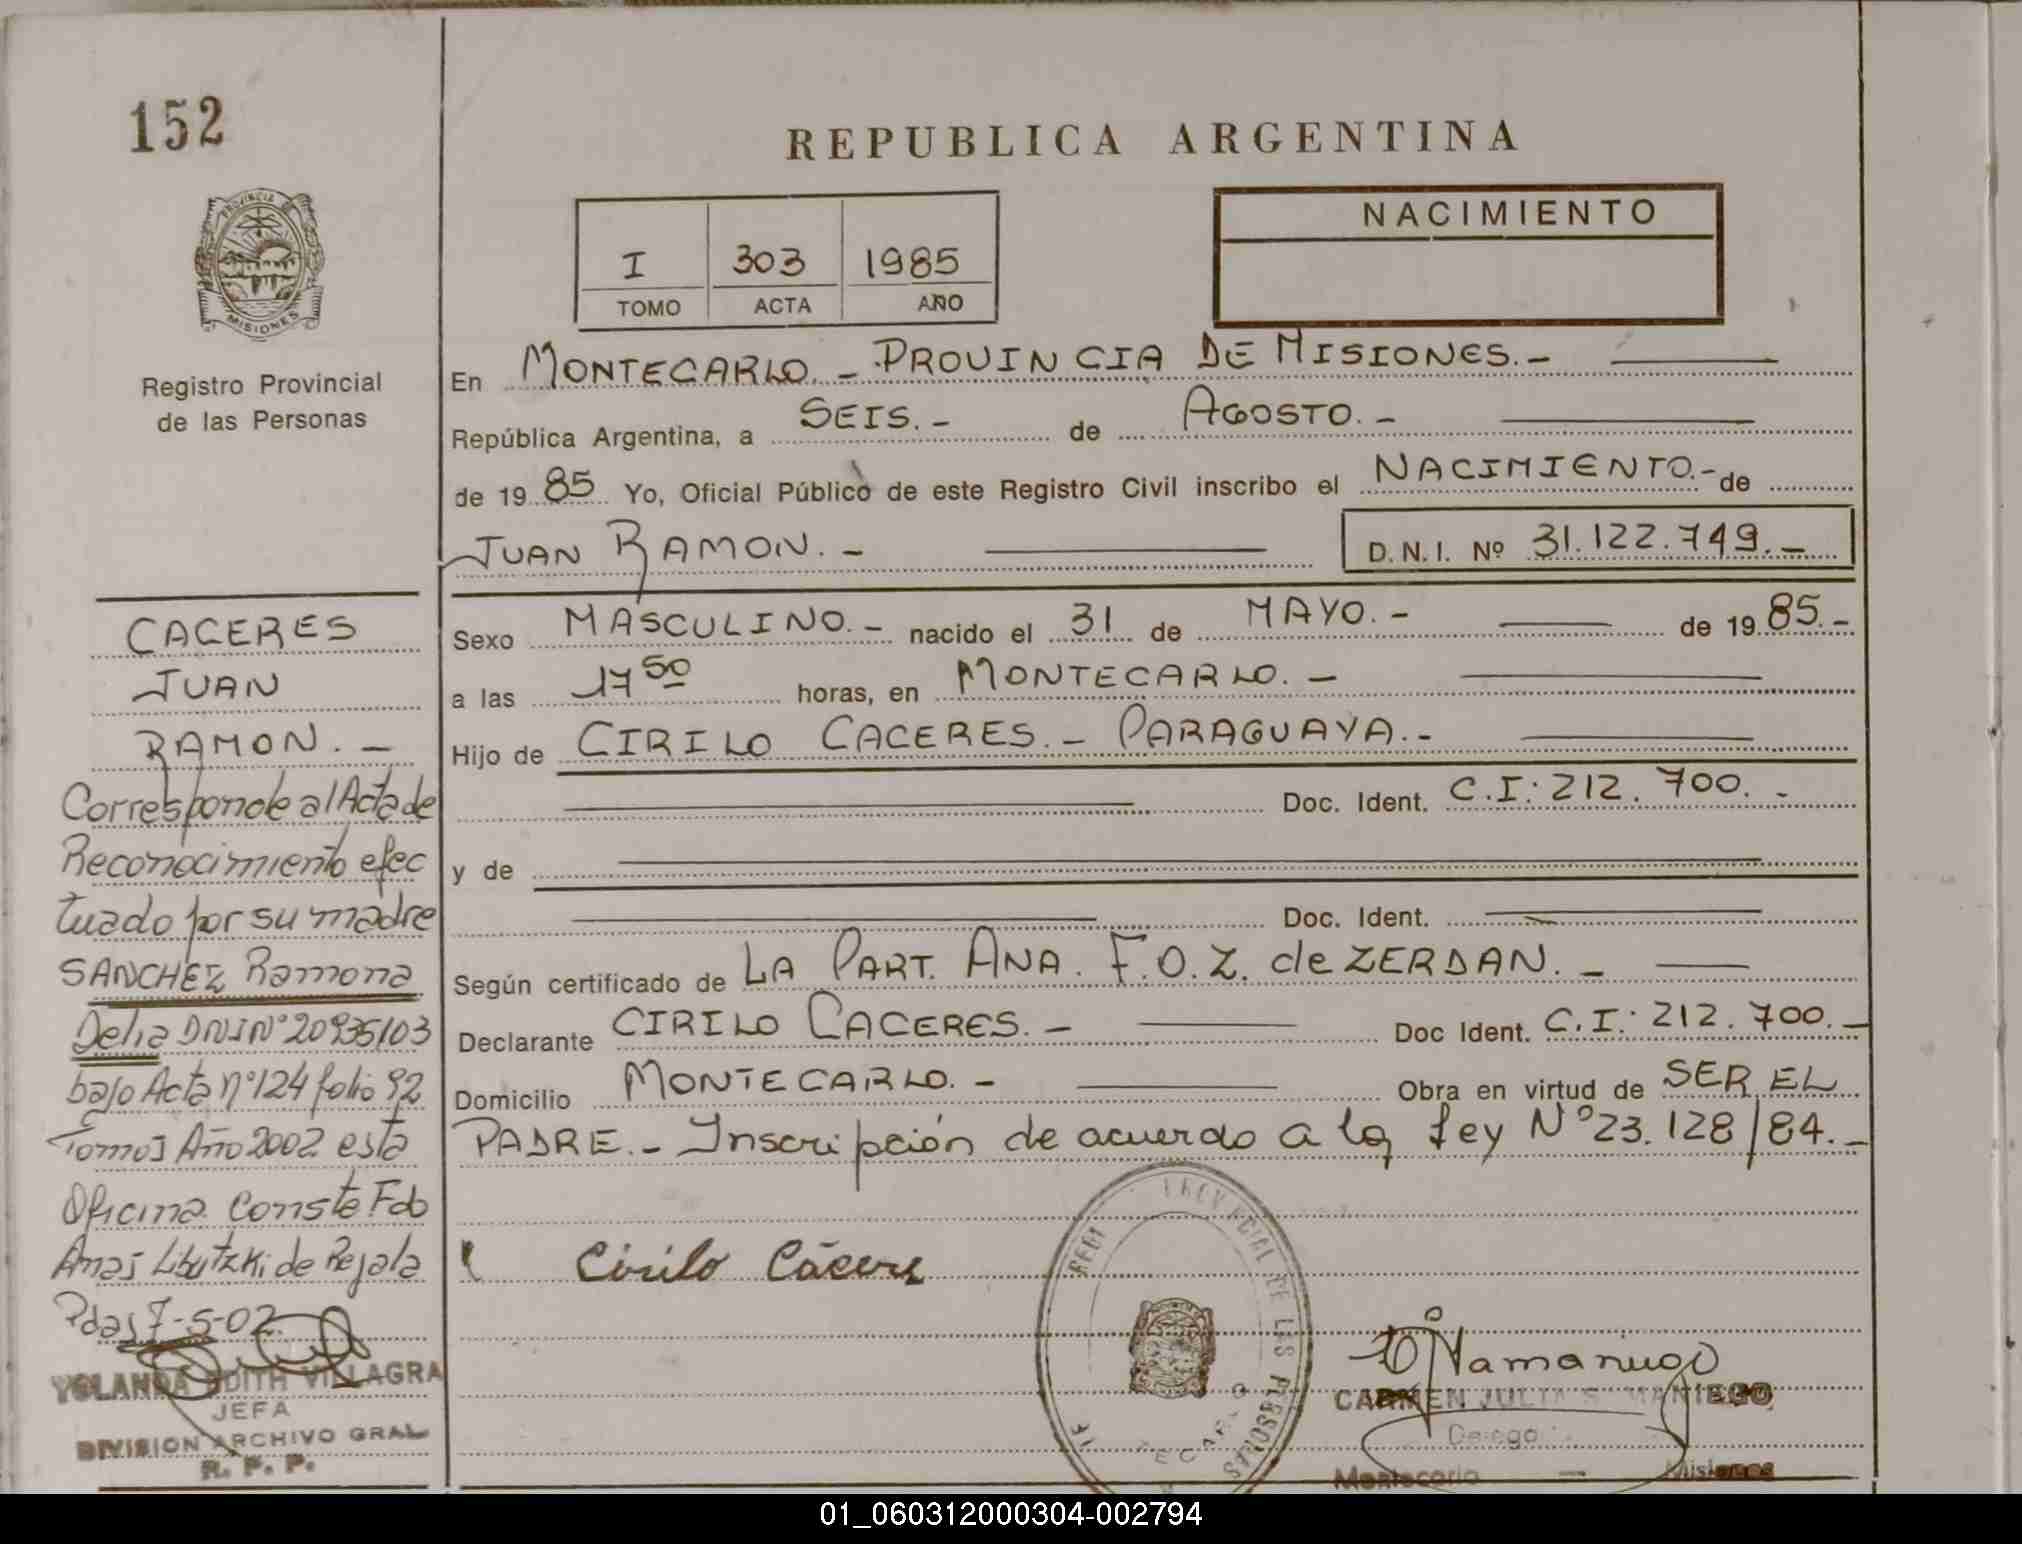 152
PROVINCIA DE
MISIONES
Registro Provincial
de las Personas
CACERES
JUAN
RAMON. -
Corresponde al Acta de
Reconocimiento efec
tuado por su madre
SANCHEZ Ramona
Delia DNI Nº 20935103
bajo Acta nº 124 folio 92
Tomo I Año 2002 esta
Oficina. Conste Fdo
de Rejala
Pdas 7-5-02
YOLANDA EDITH VILLAGRA
JEFA
DIVISION ARCHIVO GRAL
R. P. P.
REPUBLICA ARGENTINA
I 303 1985
TOMO ACTA AÑO
NACIMIENTO
En MONTECARLO. - PROVINCIA DE MISIONES. -
República Argentina, a SEIS. - de AGOSTO. -
de 19 85 Yo, Oficial Público de este Registro Civil inscribo el NACIMIENTO. - de
JUAN RAMON. - D. N. I. Nº 31.122.749. -
Sexo MASCULINO. - nacido el 31 de MAYO. - de 19 85. -
a las 17 50 horas, en MONTECARLO. -
Hijo de CIRILO CACERES. - PARAGUAYA. -
Doc. Ident. C.I: 212.700. -
y de
Doc. Ident.
Según certificado de LA PART. ANA. F.O.Z. de ZERDAN. -
Declarante CIRILO CACERES. - Doc Ident. C.I: 212.700. -
Domicilio MONTECARLO. - Obra en virtud de SER EL
PADRE. - Inscripción de acuerdo a la ley Nº 23.128/84. -
Cirilo Cácere
PROVINCIAL DE LAS PERSONAS
CARMEN JULIA SAMANIEGO
Montecarlo - Misiones
01_060312000304-002794